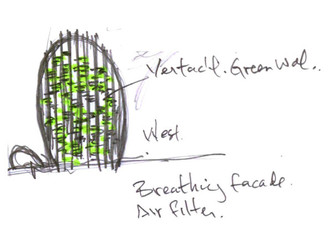 Vertac'l. Green Wal..
West.
Breathing facade.
Air Filter.